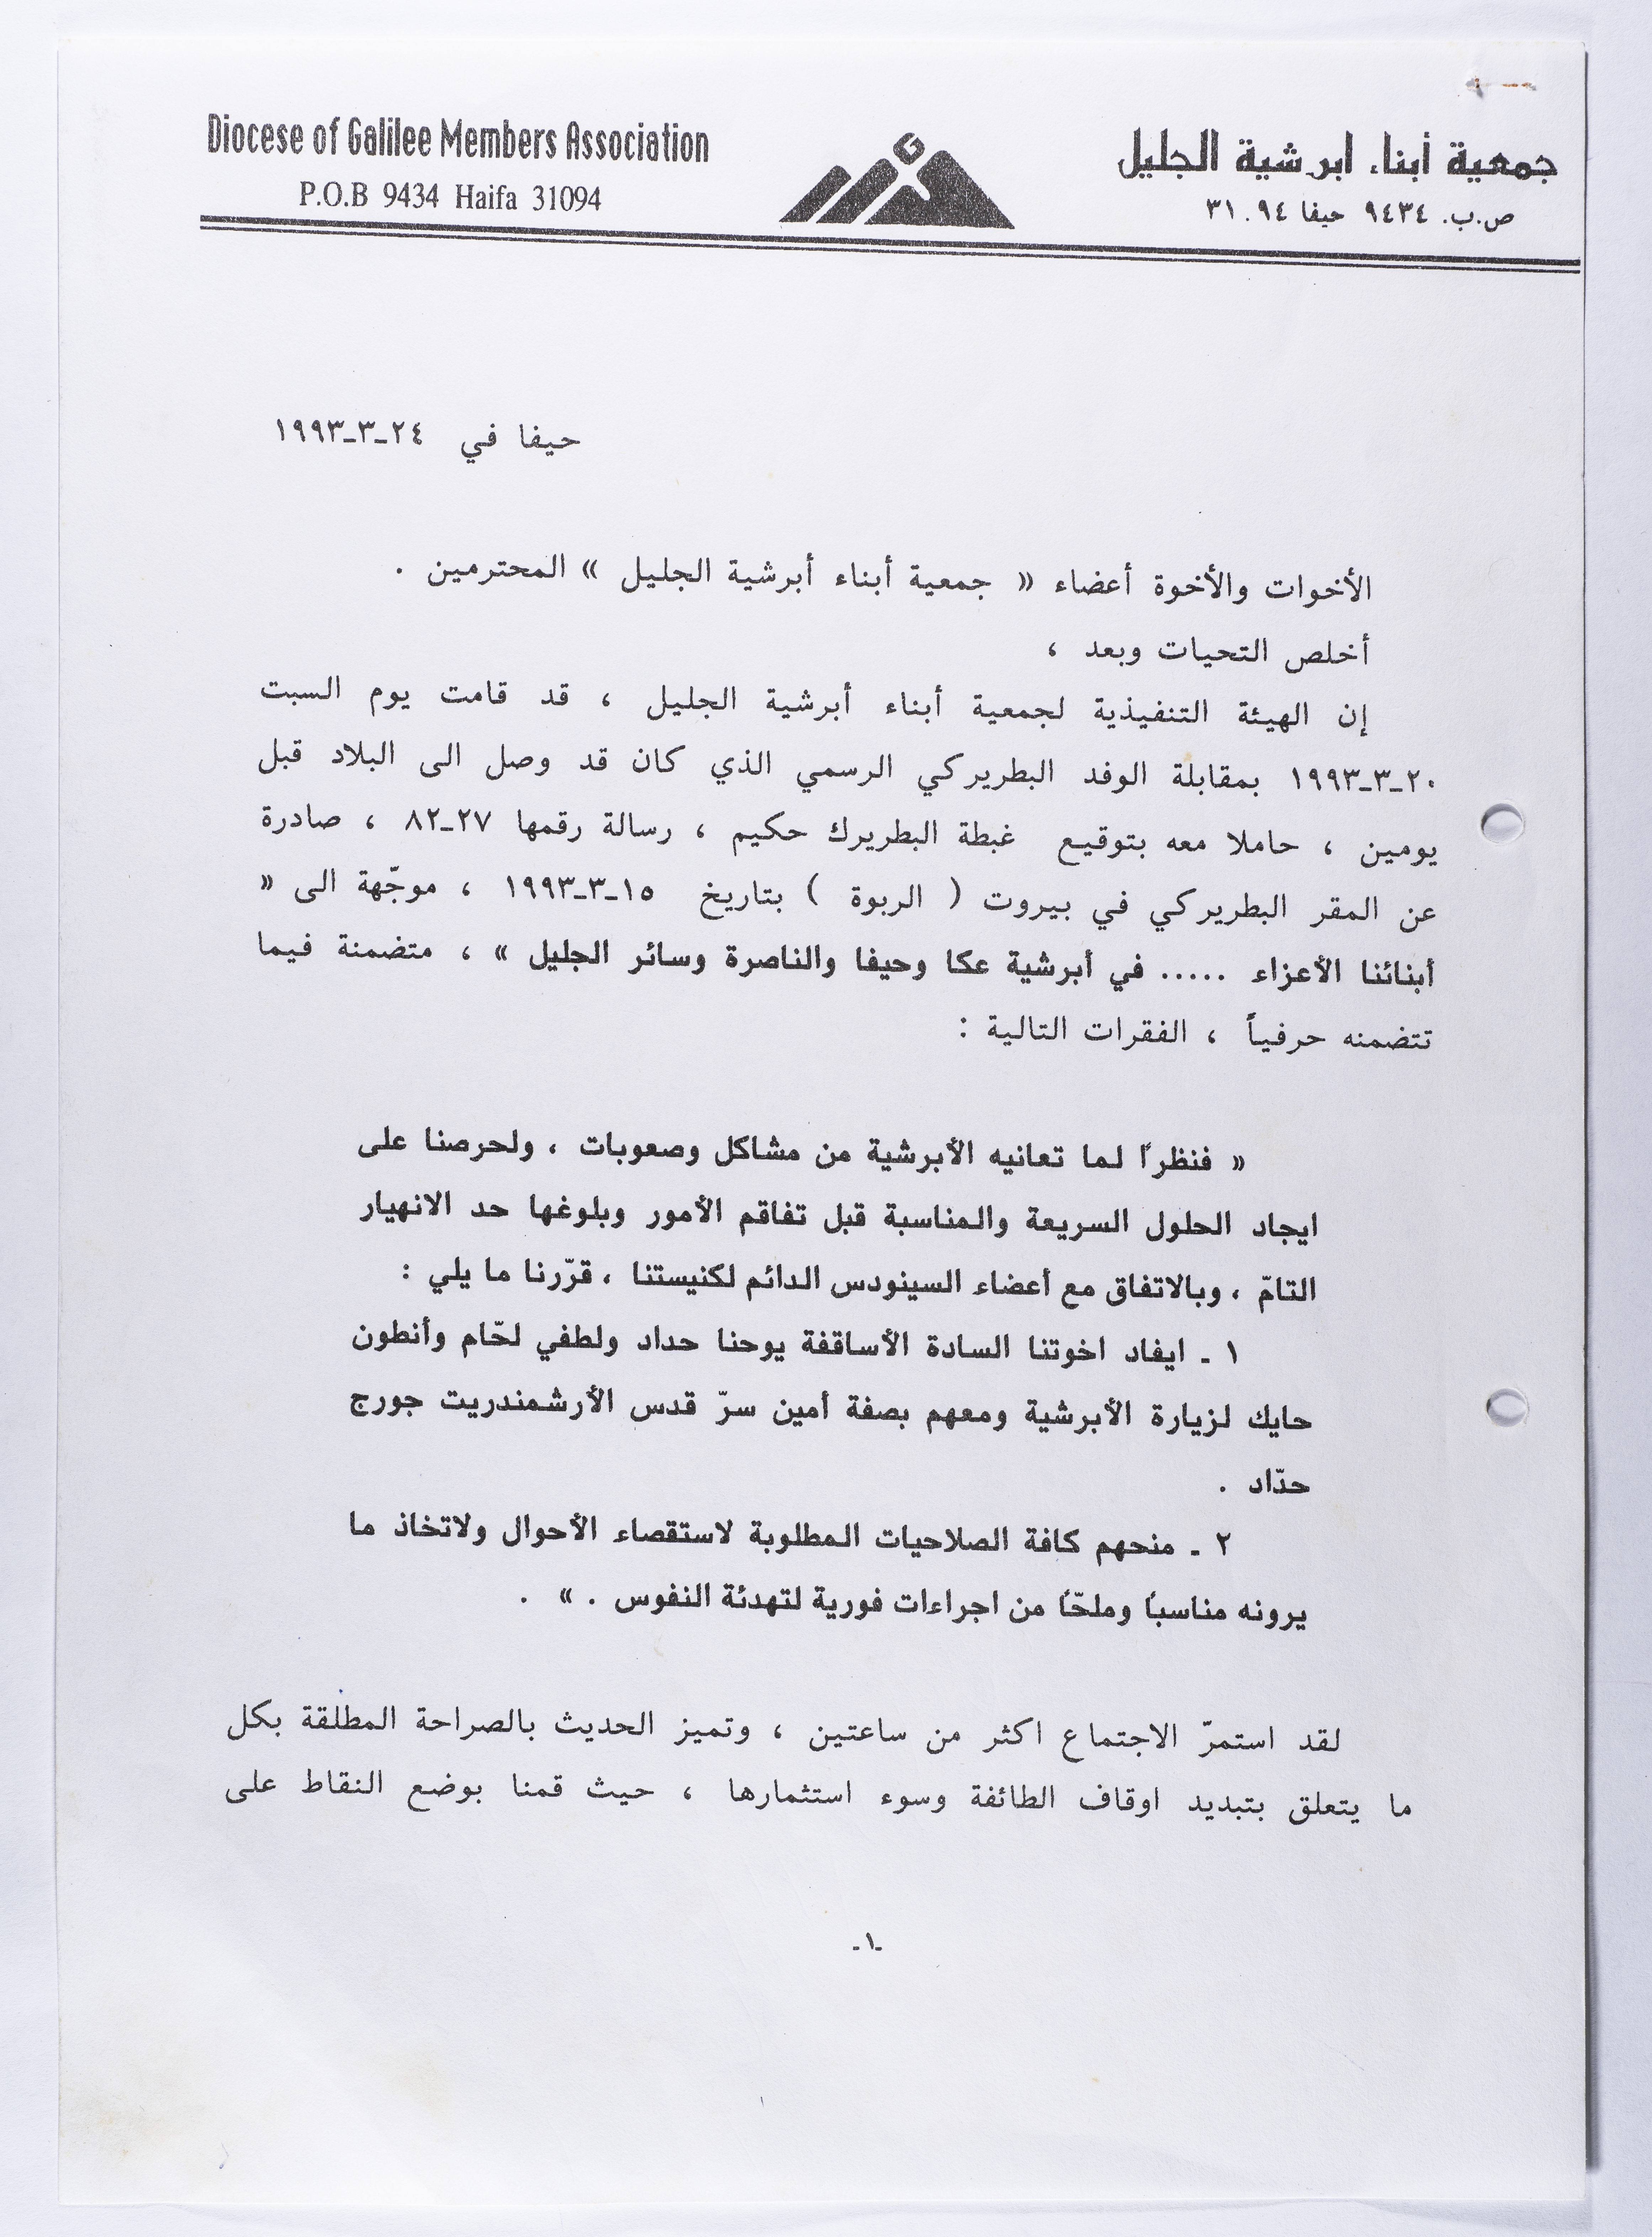 Diocese of Galilee Members Association
P.O.B 9434 Haifa 31094
جمعية أبناء ابرشية الجليل
ص.ب. ٩٤٣٤ حيفا ٣١٠٩٤
حيفا في ٢٤-٣-١٩٩٣
الأخوات والأخوة أعضاء « جمعية أبناء أبرشية الجليل » المحترمين .
أخلص التحيات وبعد ،
إن الهيئة التنفيذية لجمعية أبناء أبرشية الجليل ، قد قامت يوم السبت
٢٠-٣-١٩٩٣ بمقابلة الوفد البطريركي الرسمي الذي كان قد وصل الى البلاد قبل
يومين ، حاملا معه بتوقيع غبطة البطريرك حكيم ، رسالة رقمها ٢٧-٨٢ ، صادرة
عن المقر البطريركي في بيروت ( الربوة ) بتاريخ ١٥-٣-١٩٩٣ ، موجّهة الى «
أبنائنا الأعزاء ..... في أبرشية عكا وحيفا والناصرة وسائر الجليل » ، متضمنة فيما
تتضمنه حرفياً ، الفقرات التالية :
« فنظراً لما تعانيه الأبرشية من مشاكل وصعوبات ، ولحرصنا على
ايجاد الحلول السريعة والمناسبة قبل تفاقم الأمور وبلوغها حد الانهيار
التامّ ، وبالاتفاق مع أعضاء السينودس الدائم لكنيستنا ، قرّرنا ما يلي :
١ - ايفاد اخوتنا السادة الأساقفة يوحنا حداد ولطفي لحّام وأنطون
حايك لزيارة الأبرشية ومعهم بصفة أمين سرّ قدس الأرشمندريت جورج
حدّاد .
٢ - منحهم كافة الصلاحيات المطلوبة لاستقصاء الأحوال ولاتخاذ ما
يرونه مناسباً وملحّاً من اجراءات فورية لتهدئة النفوس . » .
لقد استمرّ الاجتماع اكثر من ساعتين ، وتميز الحديث بالصراحة المطلقة بكل
ما يتعلق بتبديد اوقاف الطائفة وسوء استثمارها ، حيث قمنا بوضع النقاط على
-١-